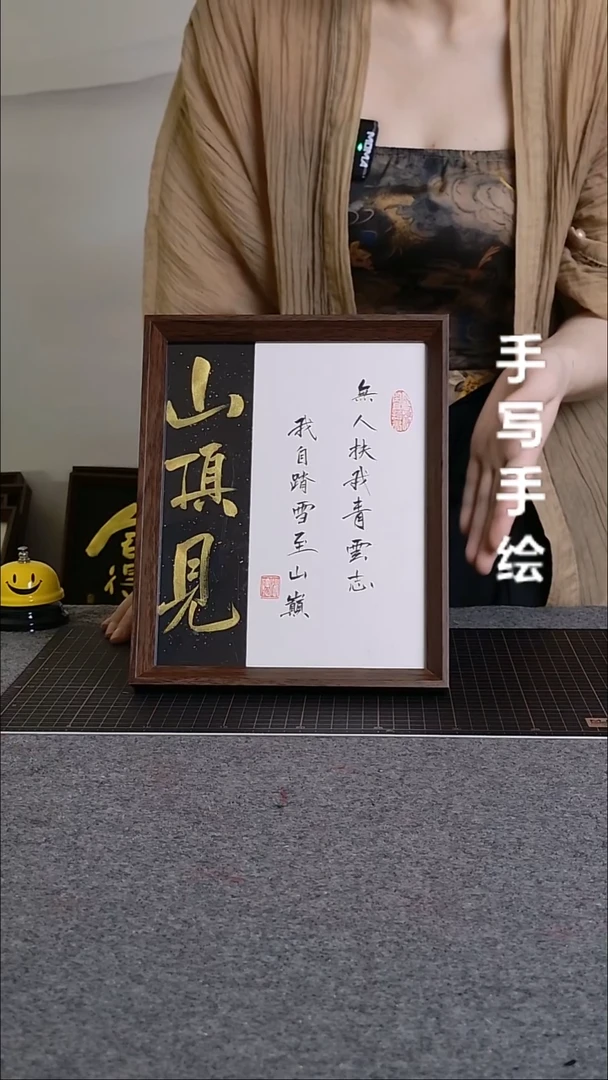 山頂見
無人扶我青雲志
我自踏雪至山巔
手写手绘
MOMA